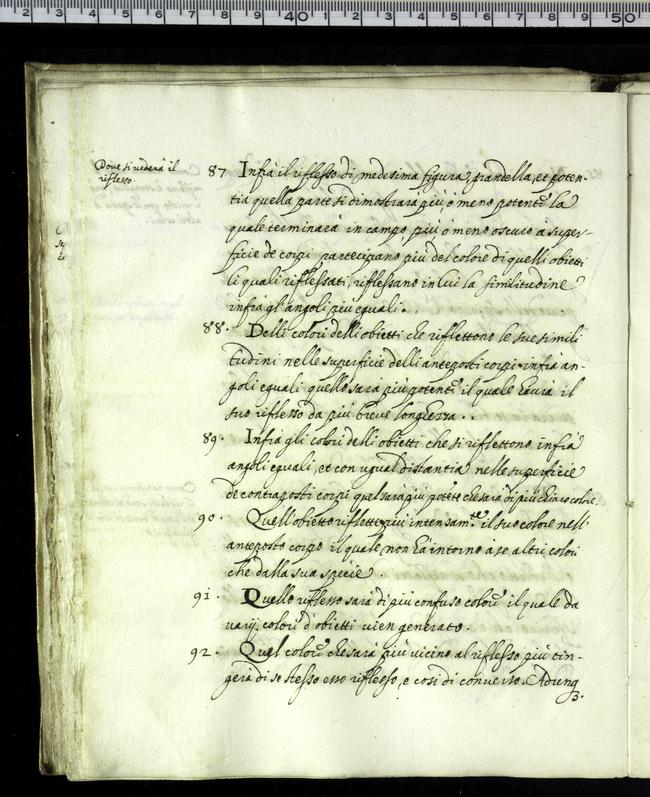 Doue si uederà il
riflesso.
87 Infrà il riflesso di medesima figura, grandezza, et poten-
tia quella parte si dimostrara più ò meno potente la
quale terminarà in campo, più ò meno oscuro à super-
ficie de corpi partecipano più del colore di quelli obietti
li quali riflessati, riflessano in lui la similitudine
infrà gl'angoli più eguali.
88. Delli colori delli obietti che riflettono le sue simili
tudini nelle superficie delli anteposti corpi infrà an-
goli eguali quello sarà più potente il quale haurà il
suo riflesso da più breue longhezza.
89. Infrà gli colori delli obietti che si riflettono infrà
angoli eguali, et con ugual distantia nelle superficie
de contraposti corpi quel sarà più potẽte che sarà di più chiaro colore.
90. Quell'obietto riflette più intensam.te il suo colore nell'
anteposto corpo il quale non hà intorno à se altri colori
che dalla sua specie.
91. Quello riflesso sarà di più confuso colore il quale da
uarij colori d'obietti uien generato.
92. Quel colore che sarà più uicino al riflesso più tin-
gerà di se stesso esso riflesso, e così di conuerso. Adung
3.